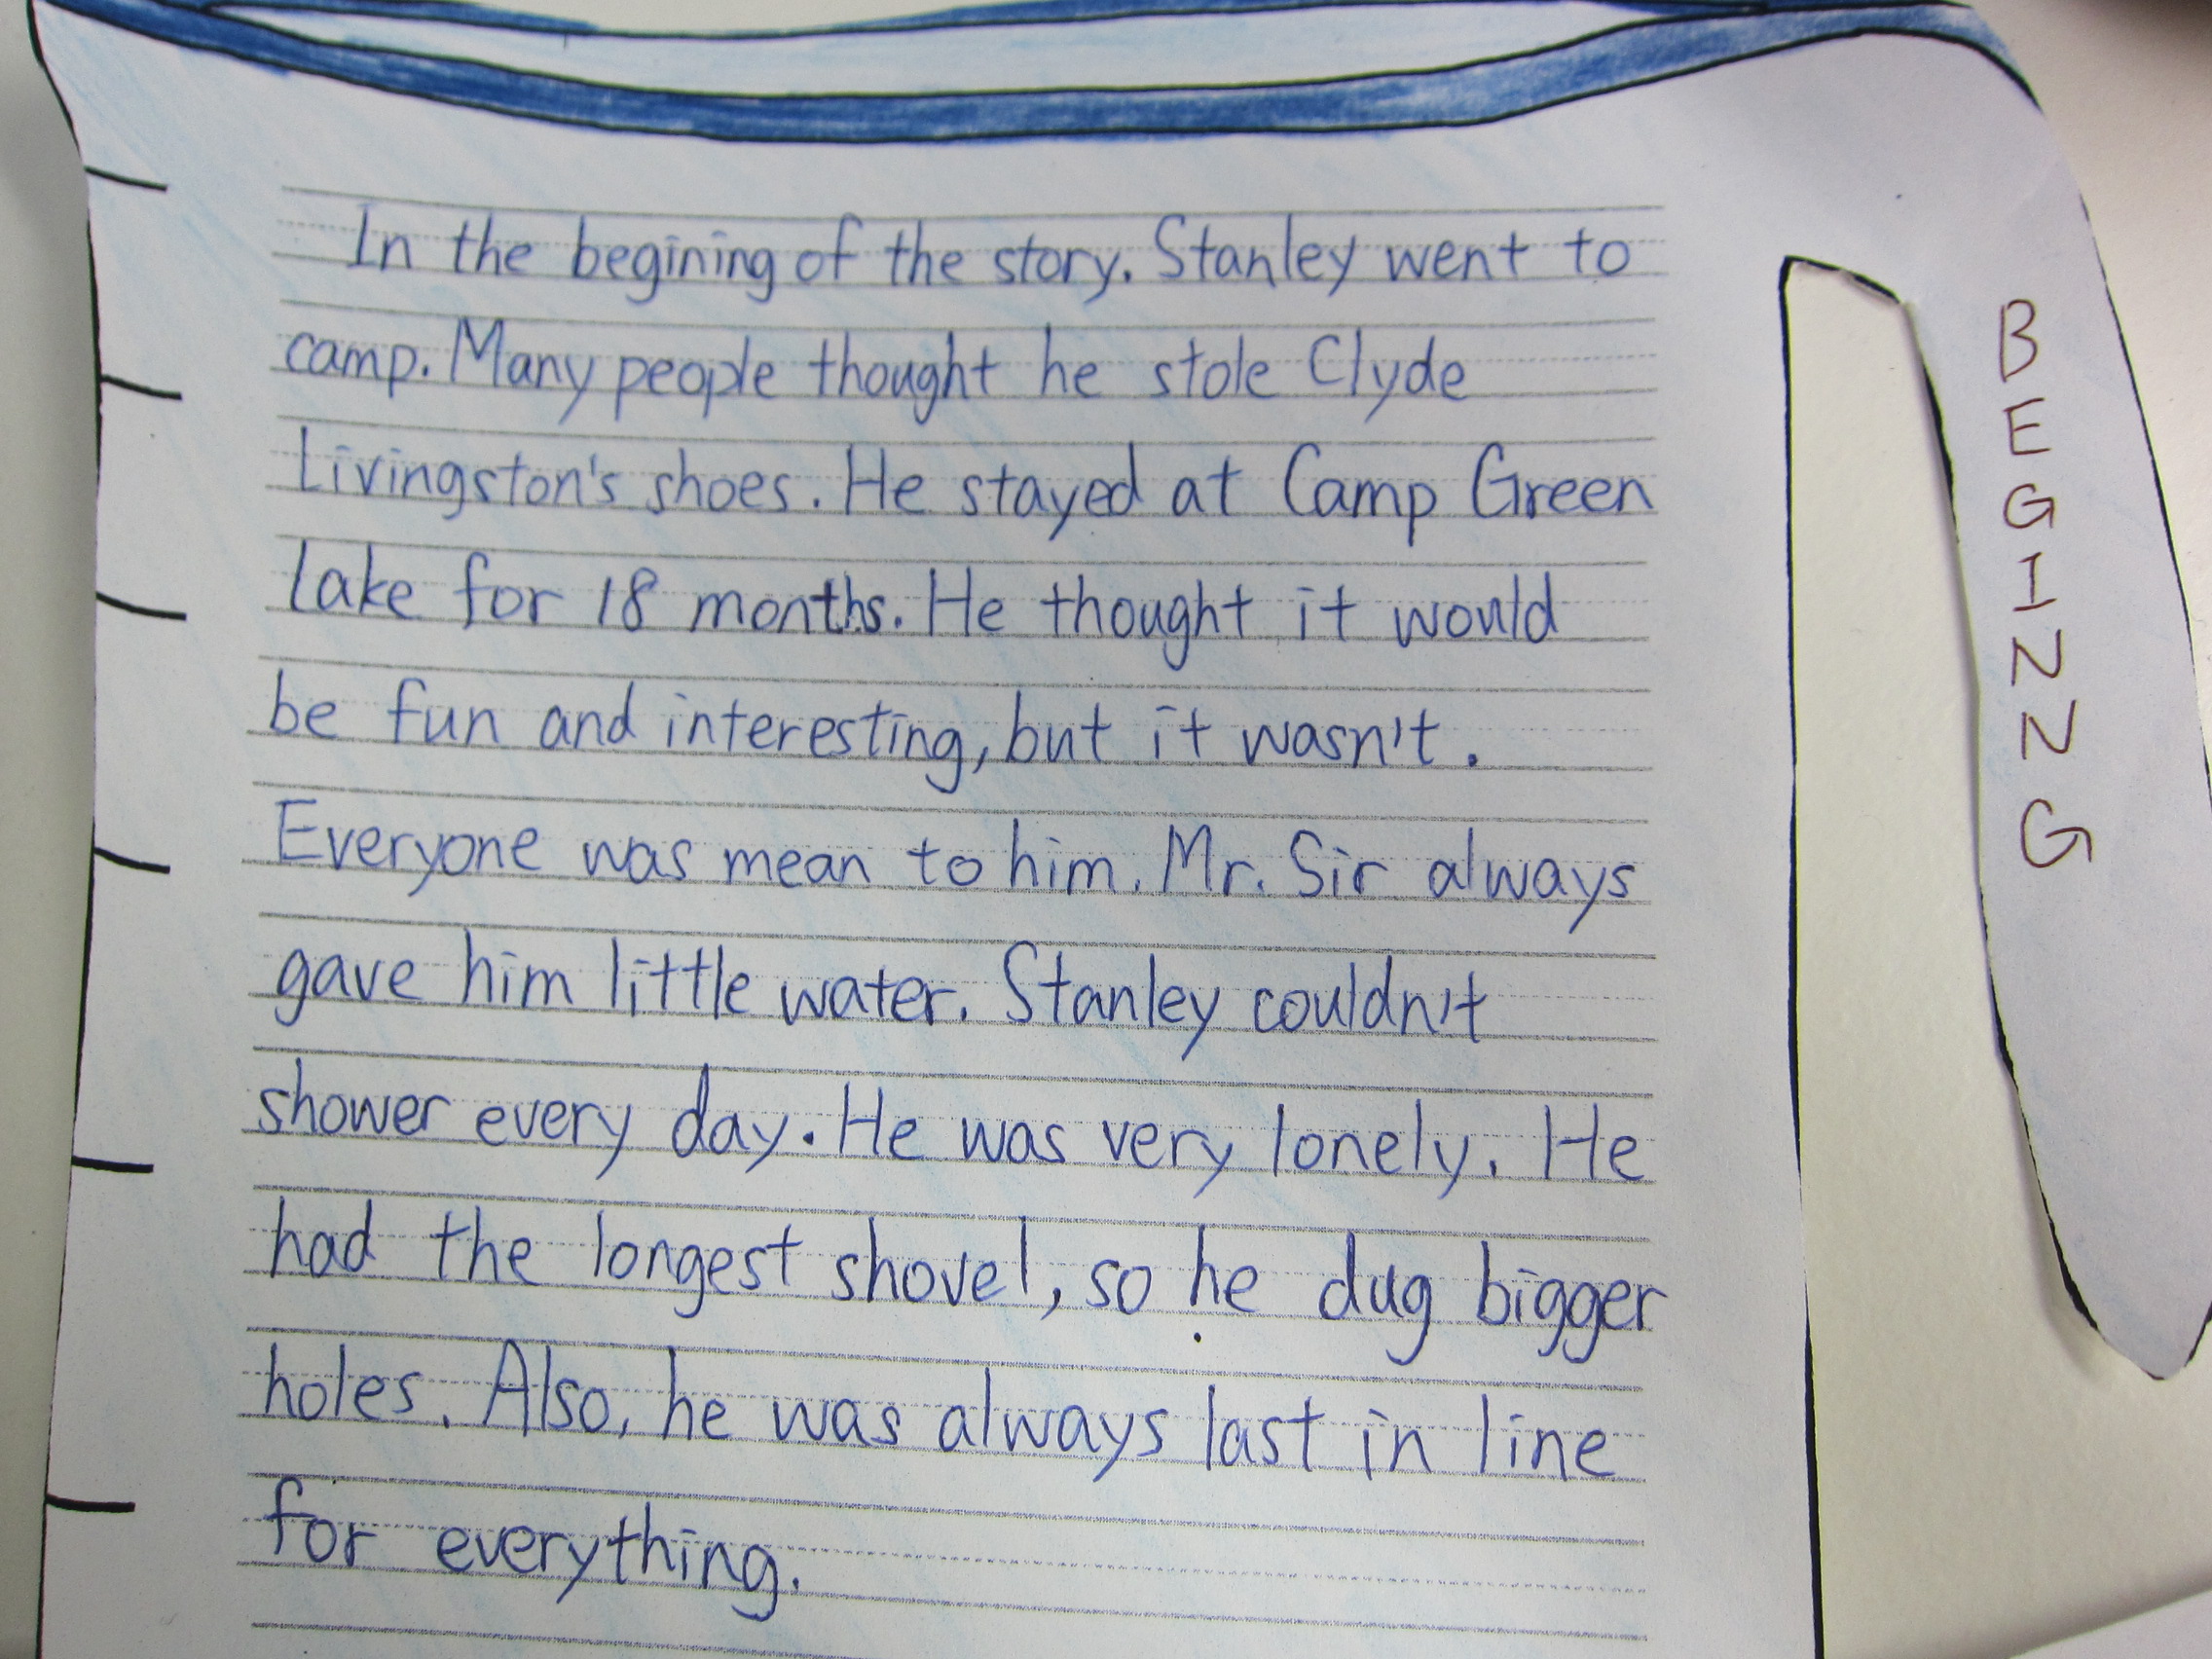 In the begining of the story. Stanley went to
camp. Many people thought he stole Clyde
Livingston's shoes. He stayed at Camp Green
lake for 18 months. He thought it would
be fun and interesting, but it wasn't.
Everyone was mean to him. Mr. Sir always
gave him little water. Stanley couldn't
shower every day. He was very lonely. He
had the longest shovel, so he dug bigger
holes. Also, he was always last in line
for everything.
BEGINNG